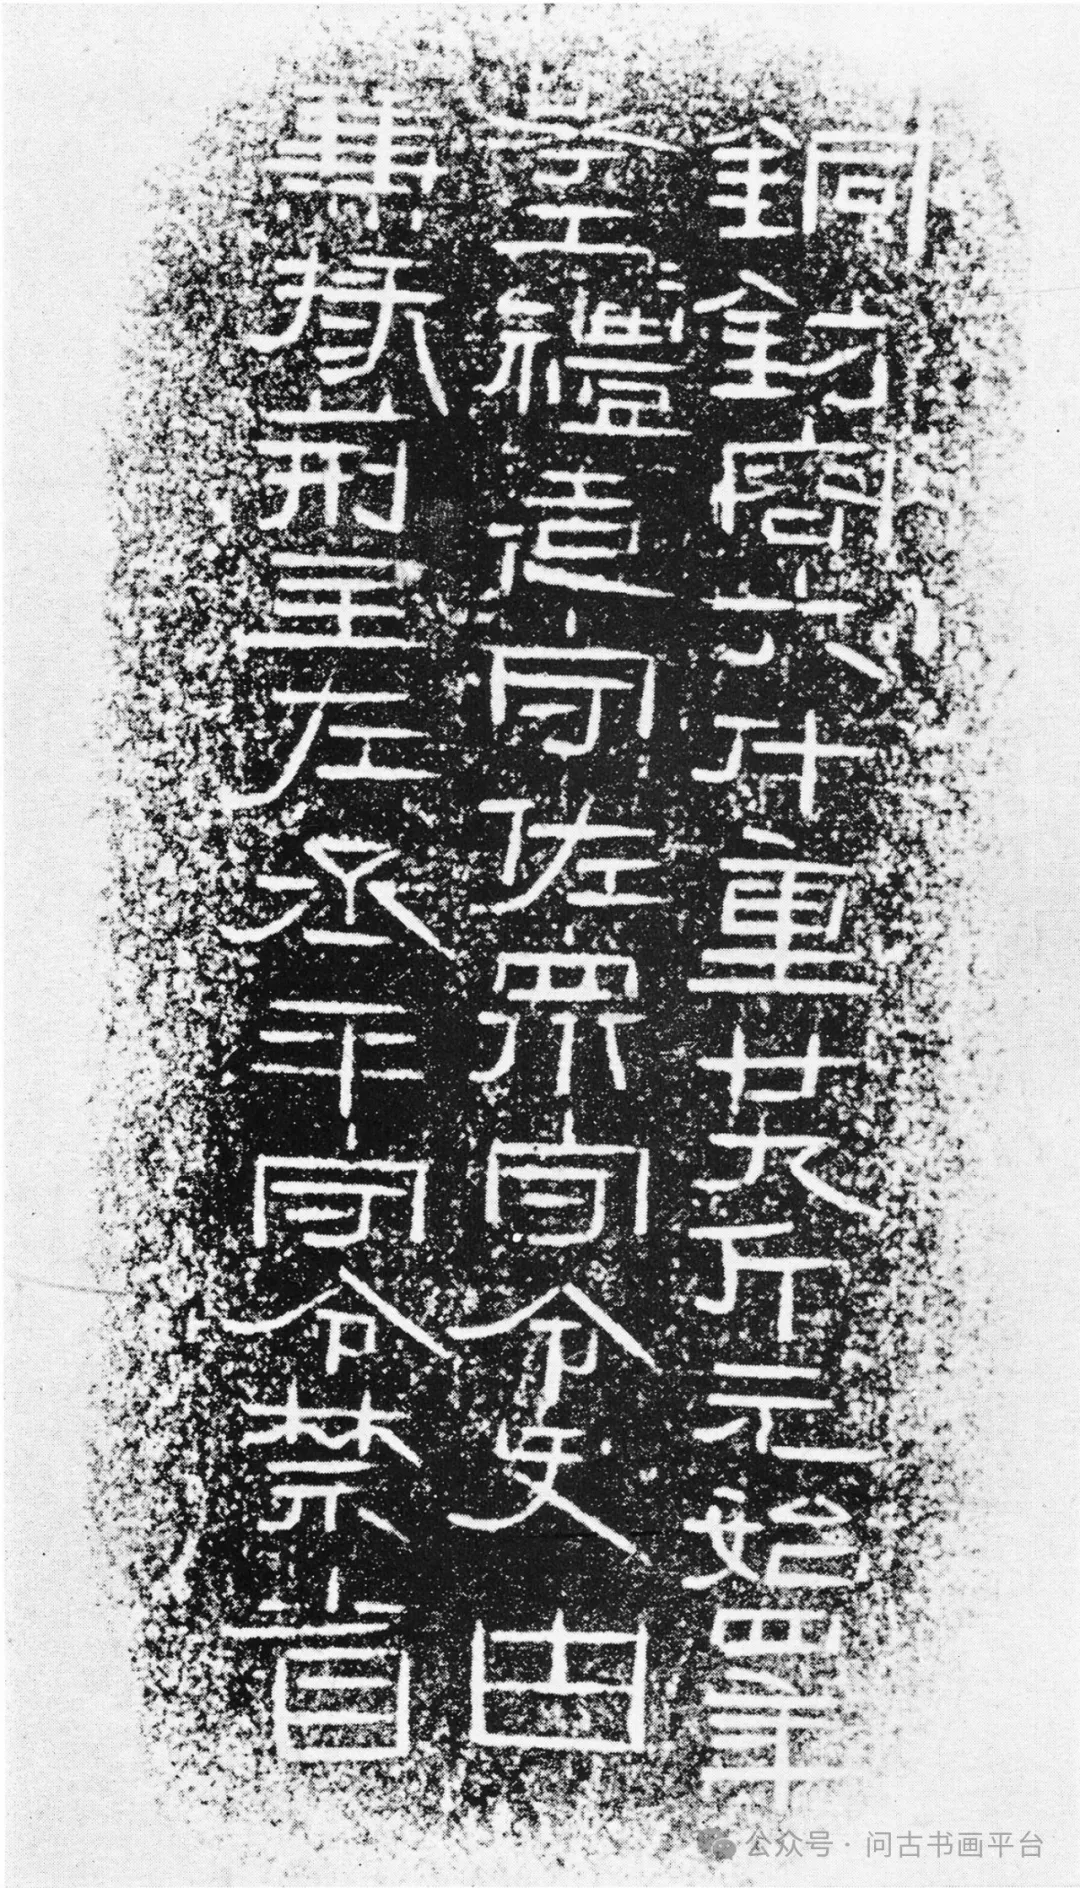 銅鈁容六斗重廿九斤元始四年
考工工禮造守佐眾守令史由
兼掾荊主左丞平守令禁省
公众号·问古书画平台